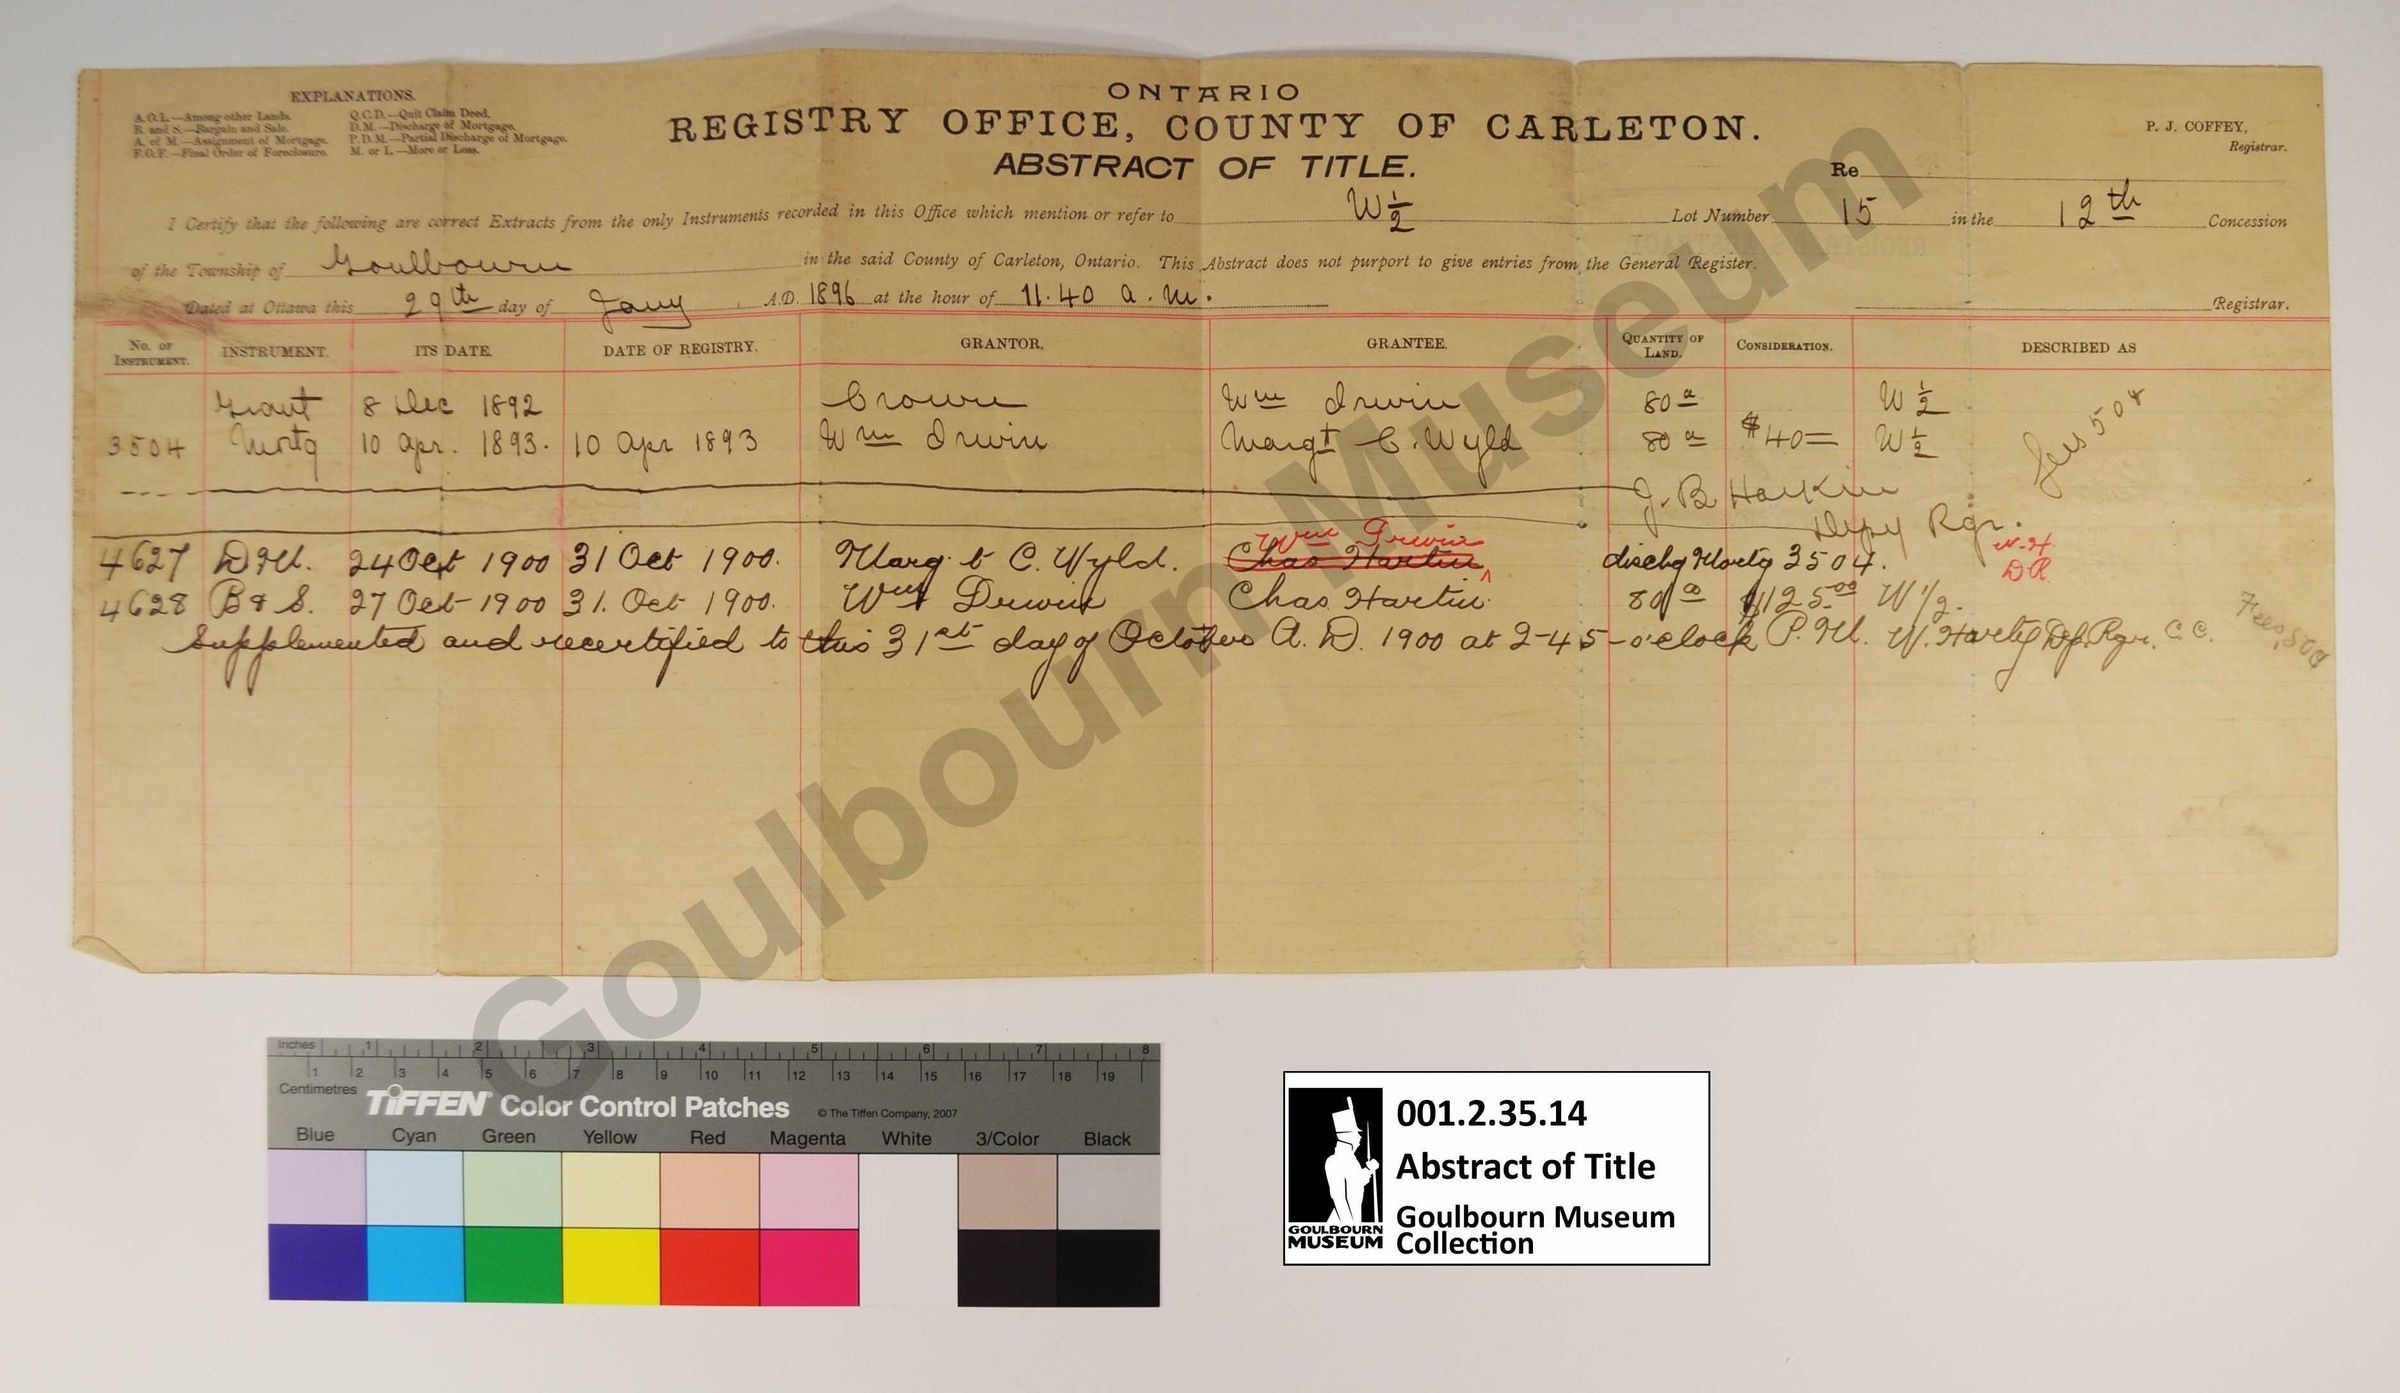 EXPLANATIONS.
A.O.L.—Among other Lands.
B. and S.—Bargain and Sale.
A. of M.—Assignment of Mortgage.
F.O.F.—Final Order of Foreclosure.
Q.C.D.—Quit Claim Deed.
D.M.—Discharge of Mortgage.
P.D.M.—Partial Discharge of Mortgage.
M. or L.—More or Less.
ONTARIO
REGISTRY OFFICE, COUNTY OF CARLETON.
ABSTRACT OF TITLE.
P. J. COFFEY,
Registrar.
Re
I Certify that the following are correct Extracts from the only Instruments recorded in this Office which mention or refer to W ½ Lot Number 15 in the 12th Concession
of the Township of Goulbourn in the said County of Carleton, Ontario. This Abstract does not purport to give entries from the General Register.
Dated at Ottawa this 29th day of Jany A.D. 1896 at the hour of 11.40 a.m. Registrar.
No. OF INSTRUMENT. INSTRUMENT. ITS DATE. DATE OF REGISTRY. GRANTOR. GRANTEE. QUANTITY OF LAND. CONSIDERATION. DESCRIBED AS
Grant 8 Dec 1892 Crown Wm Irwin 80 a W ½
3504 Mortg 10 Apr. 1893. 10 Apr 1893 Wm Irwin Margt C. Wyld 80 a $40= W ½
Fees 50¢
J. B. Harkin
Depy Rgr.
Wm Irwin
4627 D.M. 24 Oct 1900 31 Oct 1900. Marg't C. Wyld. Chas Hartin dischg Mortg 3504.
W.H.
D.R.
4628 B & S. 27 Oct 1900 31. Oct 1900. Wm Irwin Chas. Hartin. 80 a $125.00 W 1/2.
Supplemented and recertified to this 31st day of October A.D. 1900 at 2-45-o'clock P.M. Dp. Rgr. C.C.
Fees, 50¢
Goulbourn Museum
inches 1 2 3 4 5 6 7 8
1 2 3 4 5 6 7 8 9 10 11 12 13 14 15 16 17 18 19
Centimetres
TIFFEN Color Control Patches © The Tiffen Company, 2007
Blue Cyan Green Yellow Red Magenta White 3/Color Black
001.2.35.14
Abstract of Title
Goulbourn Museum
Collection
GOULBOURN
MUSEUM